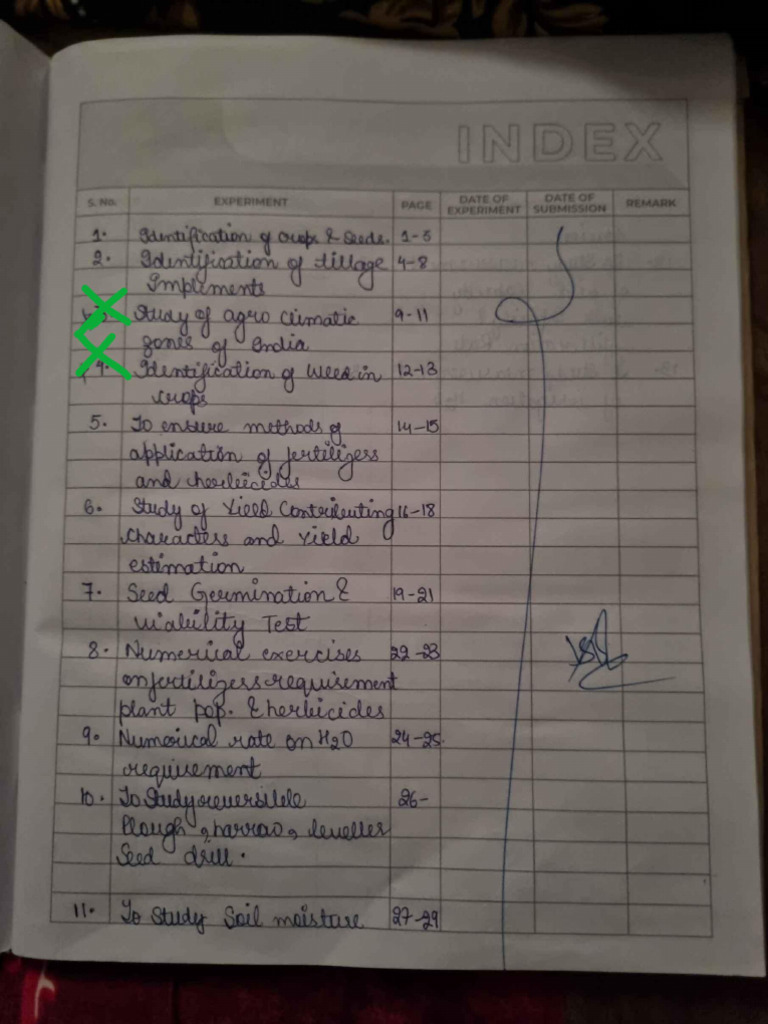 INDEX
S. No. EXPERIMENT PAGE DATE OF EXPERIMENT DATE OF SUBMISSION REMARK
1. Identification of crops & seeds. 1-3
2. Identification of tillage 4-8
Impliments
3. Study of agro climatic 9-11
zones of India
4. Identification of weed in 12-13
crops
5. To ensure methods of 14-15
application of fertilizers
and herbicides
6. Study of Yield Contributing 16-18
characters and yield
estimation
7. Seed Germination & 19-21
viability Test
8. Numerical exercises 22-23
on fertilizers requirement
plant pop. & herbicides
9. Numerical rate on H2O 24-25
requirement
10. To Study reversible 26-
Plough, harrao, leveller
Seed drill.
11. To Study Soil moisture 27-29